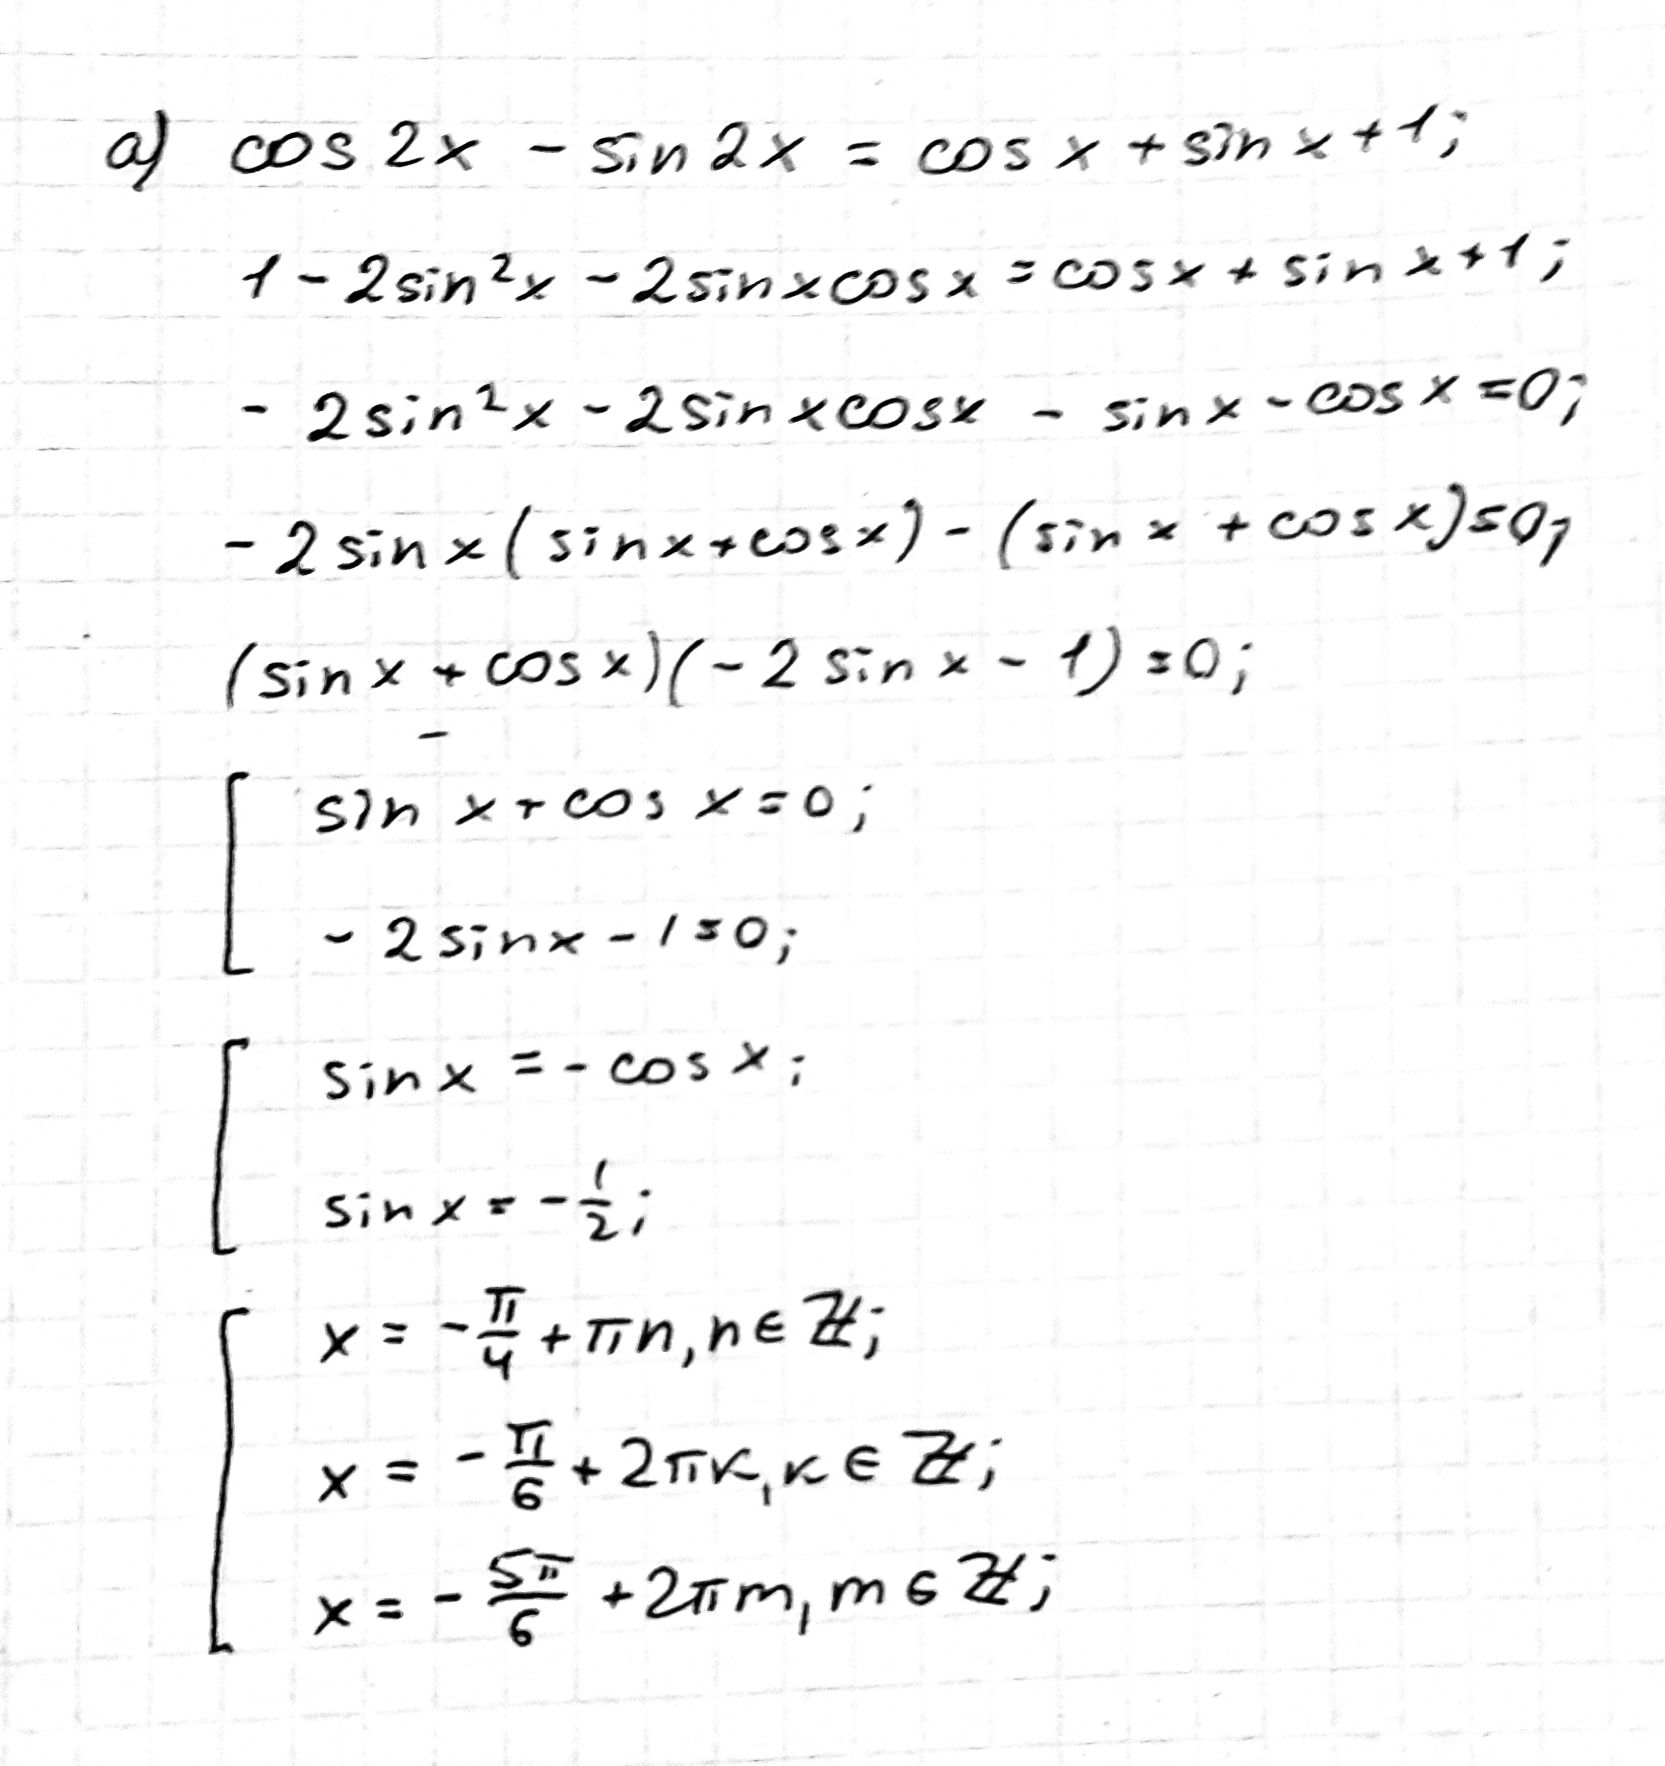 a) cos 2x - sin 2x = cos x + sin x + 1;
1 - 2sin²x - 2sinxcosx = cosx + sin x + 1;
- 2sin²x - 2sinxcosx - sinx - cosx = 0;
- 2sinx(sinx+cosx) - (sin x + cosx) = 0;
(sin x + cosx)(-2 sin x - 1) = 0;
sin x + cos x = 0;
- 2sinx - 1 = 0;
sin x = - cos x;
sin x = - 1/2;
x = - π/4 + πn, n ∈ ℤ;
x = - π/6 + 2πk, k ∈ ℤ;
x = - 5π/6 + 2πm, m ∈ ℤ;